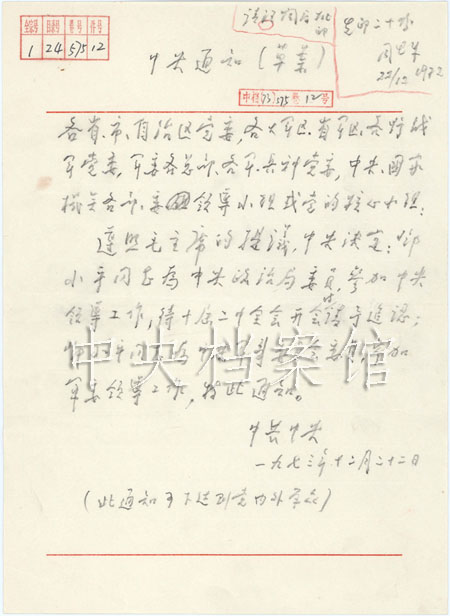 全宗号 目录号 卷号 件号
1 24 575 12
请
印
先印二十份
周恩来
22/12 1973
中央通知(草案)
中档(73)575卷12号
各省、市、自治区党委,各大军区、省军区、各野战
军党委,军委各总部、各军兵种党委,中央、国家
机关各部、委领导小组或党的核心小组:
遵照毛主席的提议,中央决定:邓
小平同志为中央政治局委员,参加中央
领导工作,待十届二中全会开会时请予追认;
邓小平同志为中央军事委员会委员,参加
军委领导工作,特此通知。
中共中央
一九七三年十二月二十二日
(此通知可下达到党内外群众)
中央档案馆